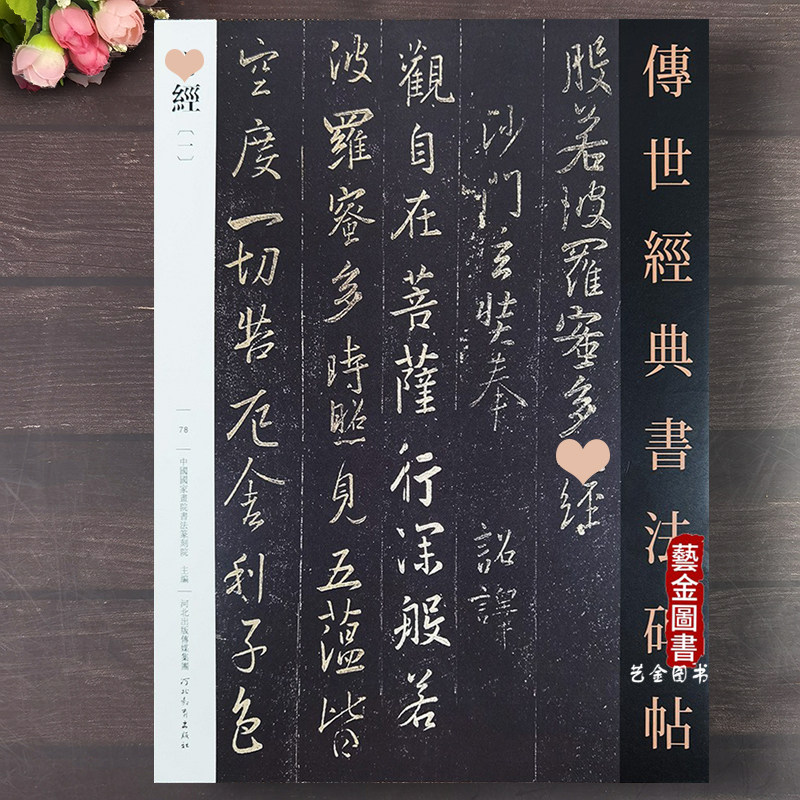 傳世經典書法碑帖
般若波羅蜜多
經
沙門玄奘奉 詔譯
觀自在菩薩行深般若
波羅蜜多時照見五蘊皆
空度一切苦厄舍利子色
經
〔一〕
78
中國國家畫院書法篆刻院 主編
河北出版傳媒集團
河北教育出版社
藝金圖書
艺金图书